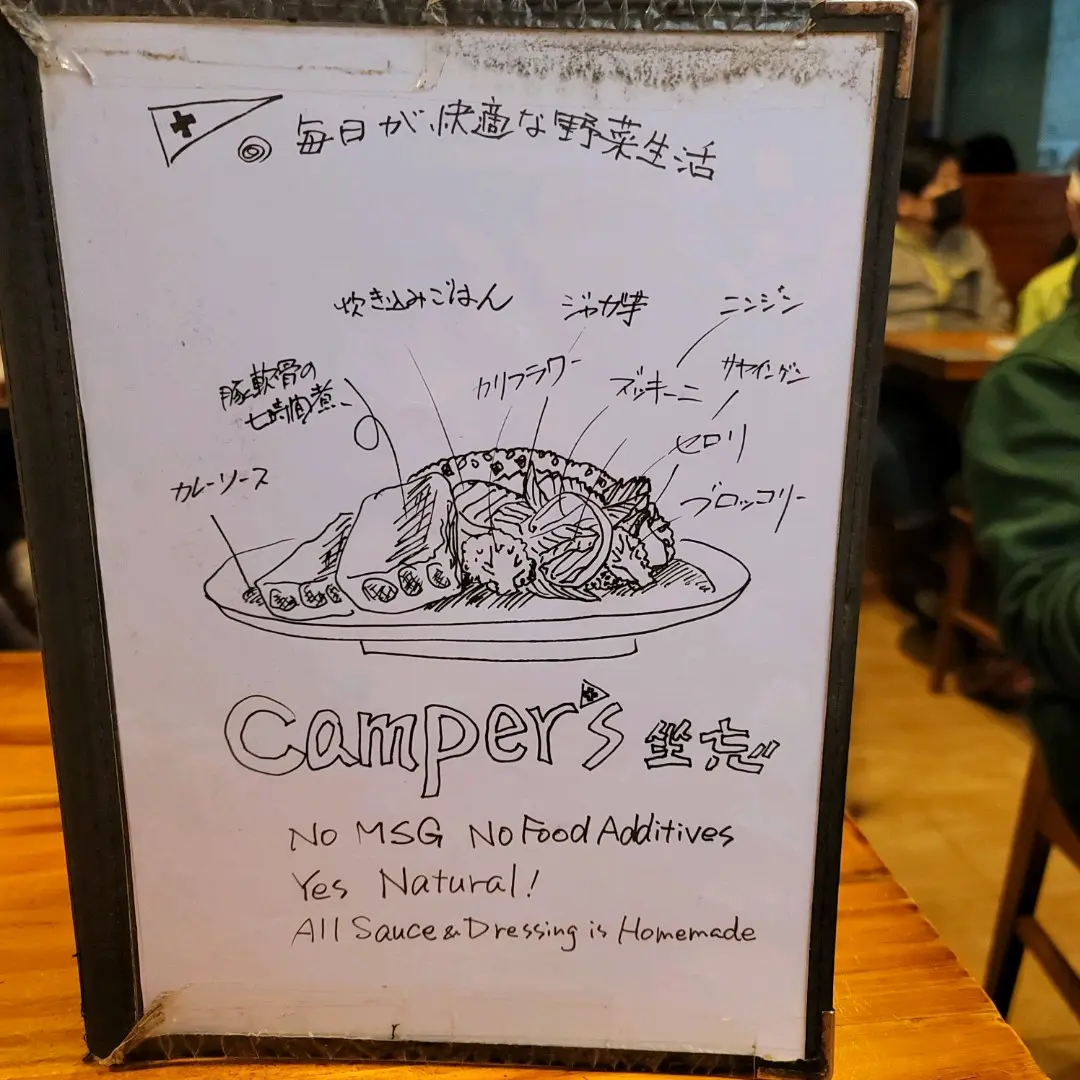 毎日が、快適な野菜生活
炊き込みごはん
ジャガ芋
ニンジン
カリフラワー
ズッキーニ
サヤインゲン
豚軟骨の
七時間煮
セロリ
カレーソース
ブロッコリー
Camper's 坐忘
No MSG No Food Additives
Yes Natural!
All Sauce & Dressing is Homemade